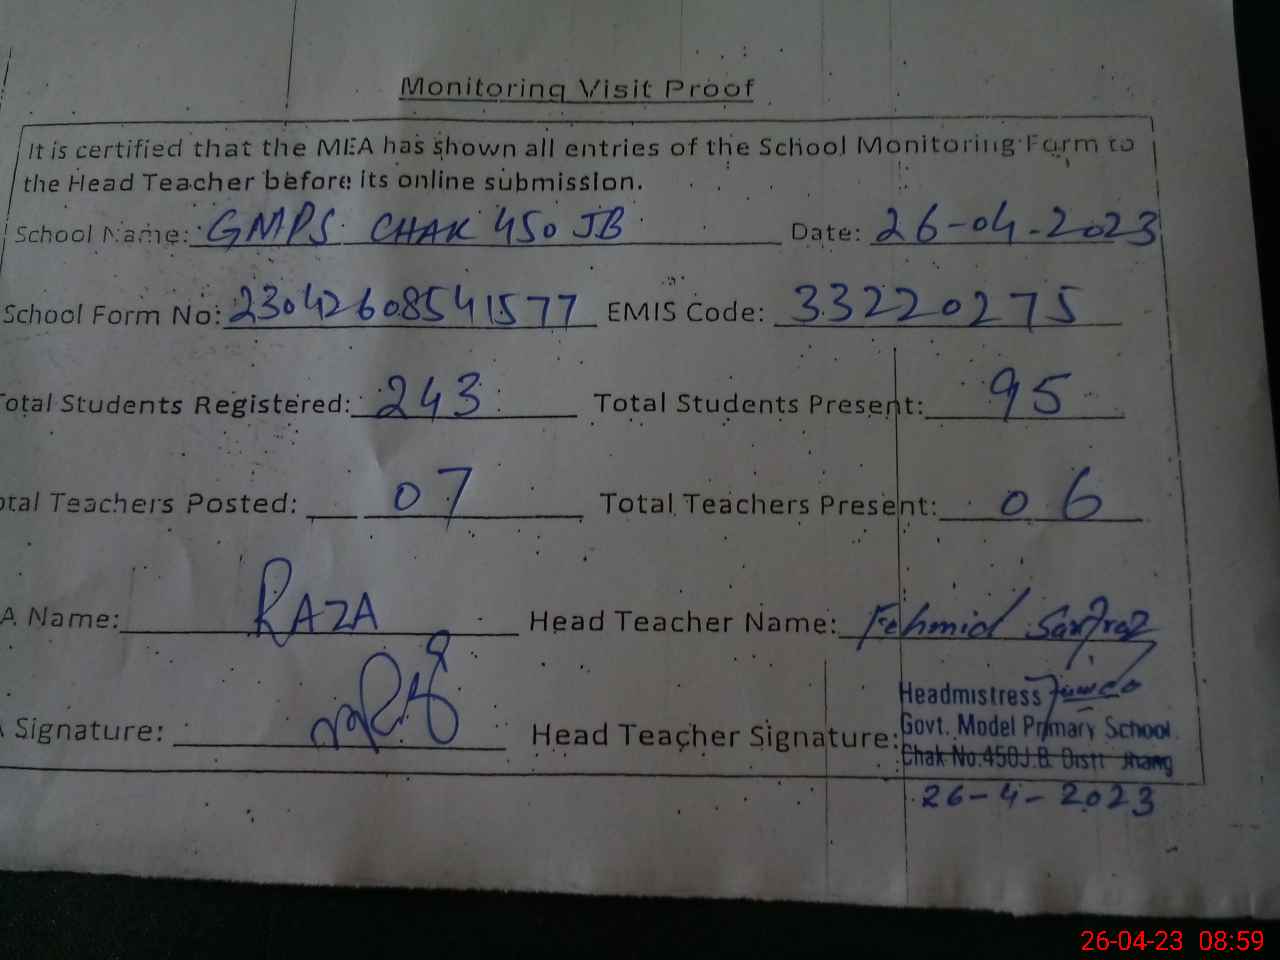 Monitoring Visit Proof
It is certified that the MEA has shown all entries of the School Monitoring Form to
the Head Teacher before its online submission.
School Name: GMPS CHAK 450 JB Date: 26-04-2023
School Form No: 23042608541577 EMIS Code: 33220275
Total Students Registered: 243 Total Students Present: 95
otal Teachers Posted: 07 Total Teachers Present: 06
A Name: RAZA Head Teacher Name: Fehmid Sarfraz
A Signature: Head Teacher Signature:
Headmistress
Govt. Model Primary School
Chak No.450J.B. Distt Jhang
26-4-2023
26-04-23 08:59